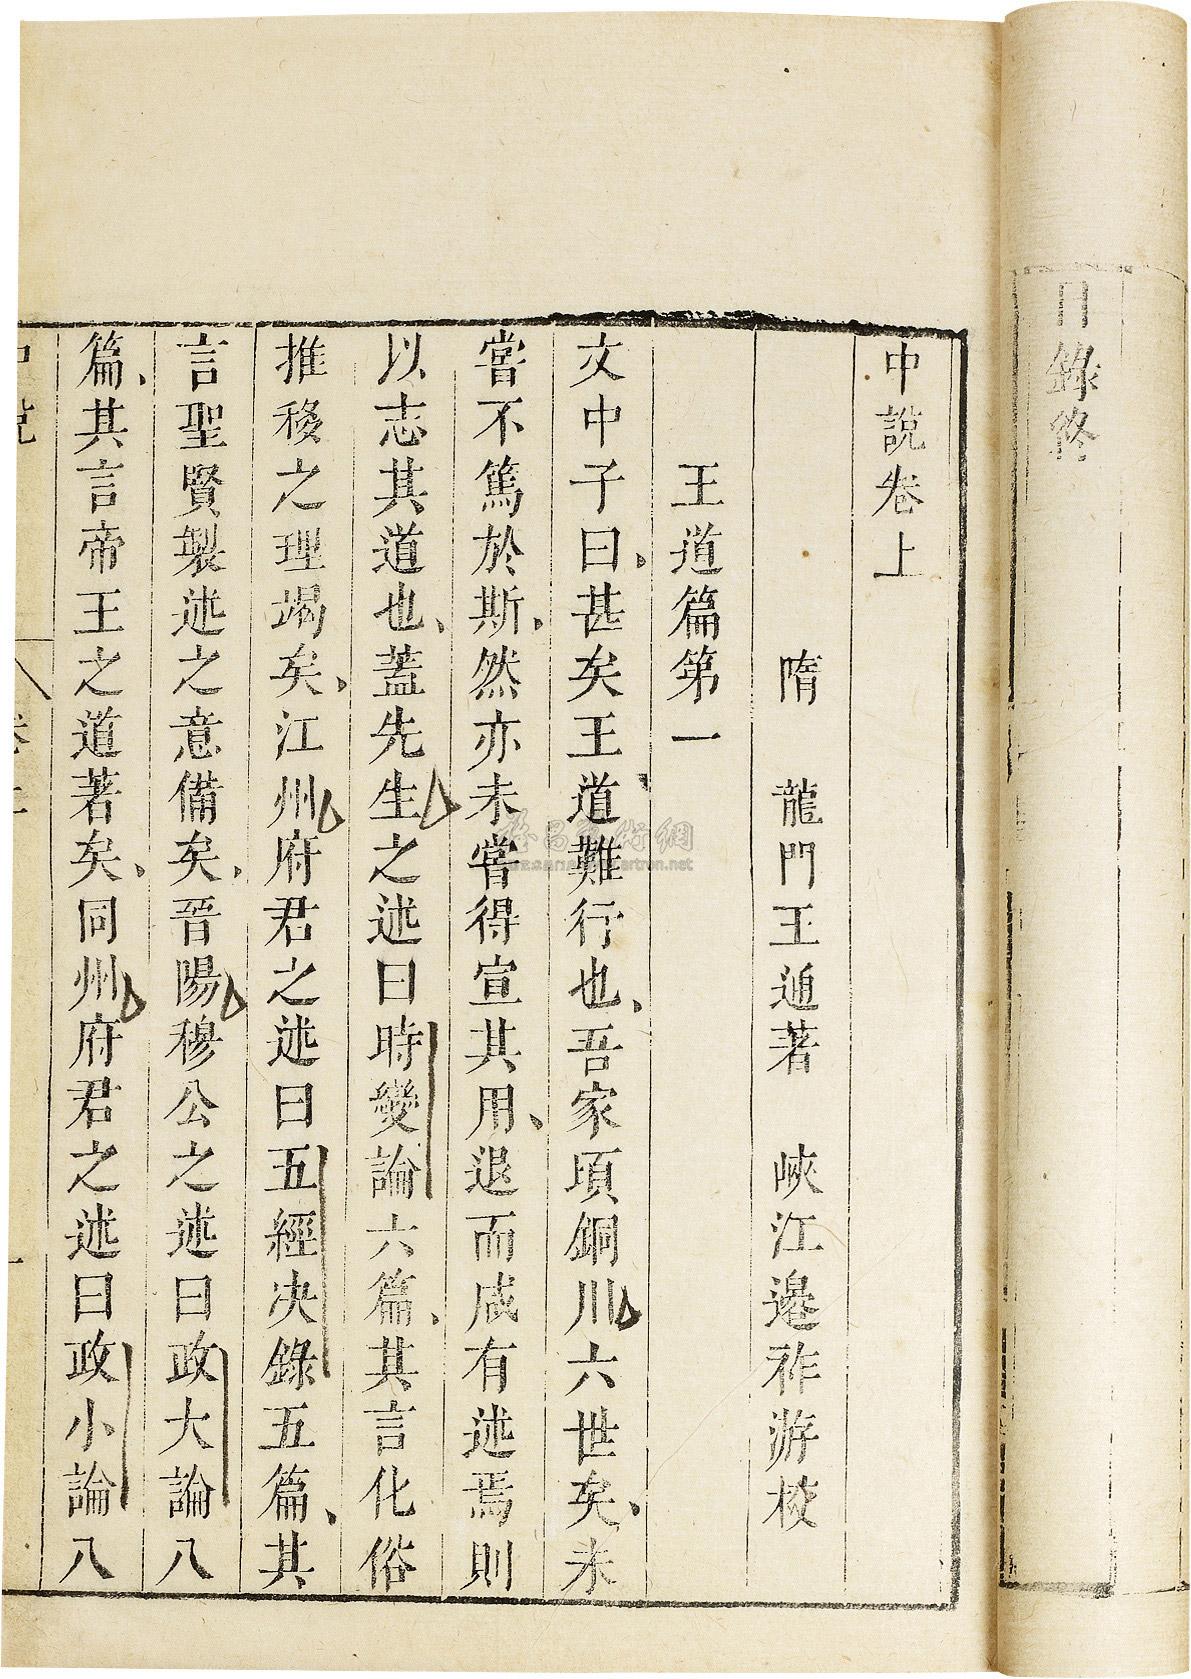 目錄終
中說卷上
隋 龍門王通著 峽江邊祚游校
王道篇第一
文中子曰、甚矣王道難行也、吾家頃銅川六世矣、未
嘗不篤於斯、然亦未嘗得宣其用、退而咸有述焉則
以志其道也、蓋先生之述曰時變論六篇、其言化俗
推移之理竭矣、江州府君之述曰五經決錄五篇、其
言聖賢製述之意備矣、晉陽穆公之述曰政大論八
篇、其言帝王之道著矣、同州府君之述曰政小論八
中說 卷上 一